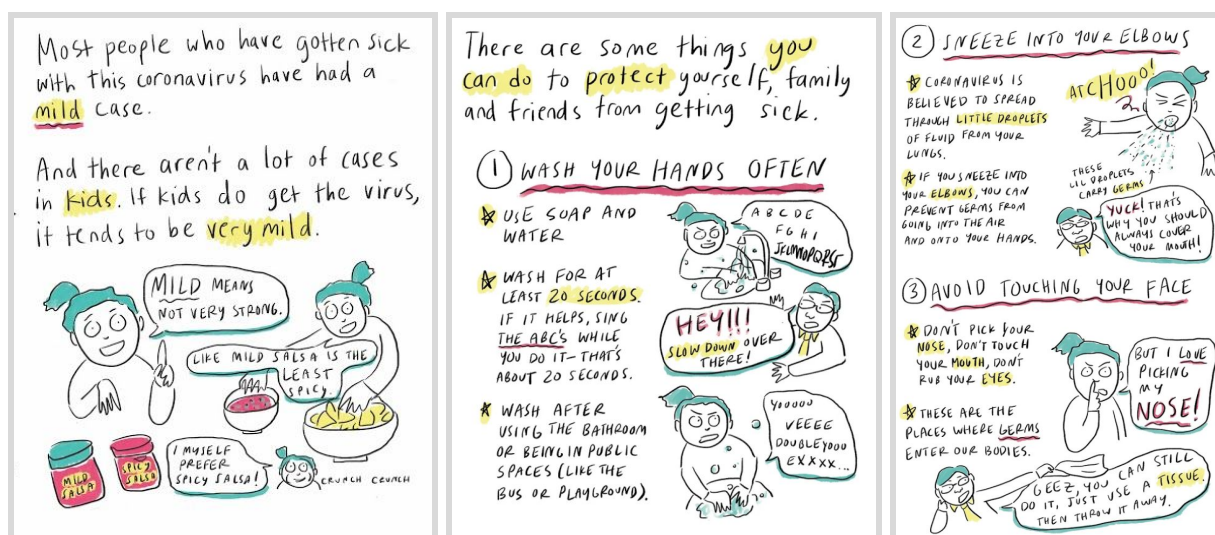 Most people who have gotten sick
with this coronavirus have had a
mild case.
And there aren't a lot of cases
in kids. If kids do get the virus,
it tends to be very mild.
MILD MEANS
NOT VERY STRONG.
LIKE MILD SALSA IS THE
LEAST
SPICY.
MILD
SALSA
SPICY
SALSA
I MYSELF
PREFER
SPICY SALSA!
CRUNCH CRUNCH
There are some things you
can do to protect yourself, family
and friends from getting sick.
1 WASH YOUR HANDS OFTEN
USE SOAP AND
WATER
A B C D E
F G H I
JKLMNOPQRST
WASH FOR AT
LEAST 20 SECONDS.
IF IT HELPS, SING
THE ABC'S WHILE
YOU DO IT – THAT'S
ABOUT 20 SECONDS.
HEY!!!
SLOW DOWN OVER
THERE!
WASH AFTER
USING THE BATHROOM
OR BEING IN PUBLIC
SPACES (LIKE THE
BUS OR PLAYGROUND).
YOOOOO
VEEEE
DOUBLEYOOO
EXXXX...
2 SNEEZE INTO YOUR ELBOWS
CORONAVIRUS IS
BELIEVED TO SPREAD
THROUGH LITTLE DROPLETS
OF FLUID FROM YOUR
LUNGS.
ATCHOOO!
THESE
LIL DROPLETS
CARRY GERMS
IF YOU SNEEZE INTO
YOUR ELBOWS, YOU CAN
PREVENT GERMS FROM
GOING INTO THE AIR
AND ONTO YOUR HANDS.
YUCK! THAT'S
WHY YOU SHOULD
ALWAYS COVER
YOUR MOUTH!
3 AVOID TOUCHING YOUR FACE
DON'T PICK YOUR
NOSE, DON'T TOUCH
YOUR MOUTH, DON'T
RUB YOUR EYES.
BUT I LOVE
PICKING
MY
NOSE!
THESE ARE THE
PLACES WHERE GERMS
ENTER OUR BODIES.
GEEZ, YOU CAN STILL
DO IT, JUST USE A TISSUE.
THEN THROW IT AWAY.